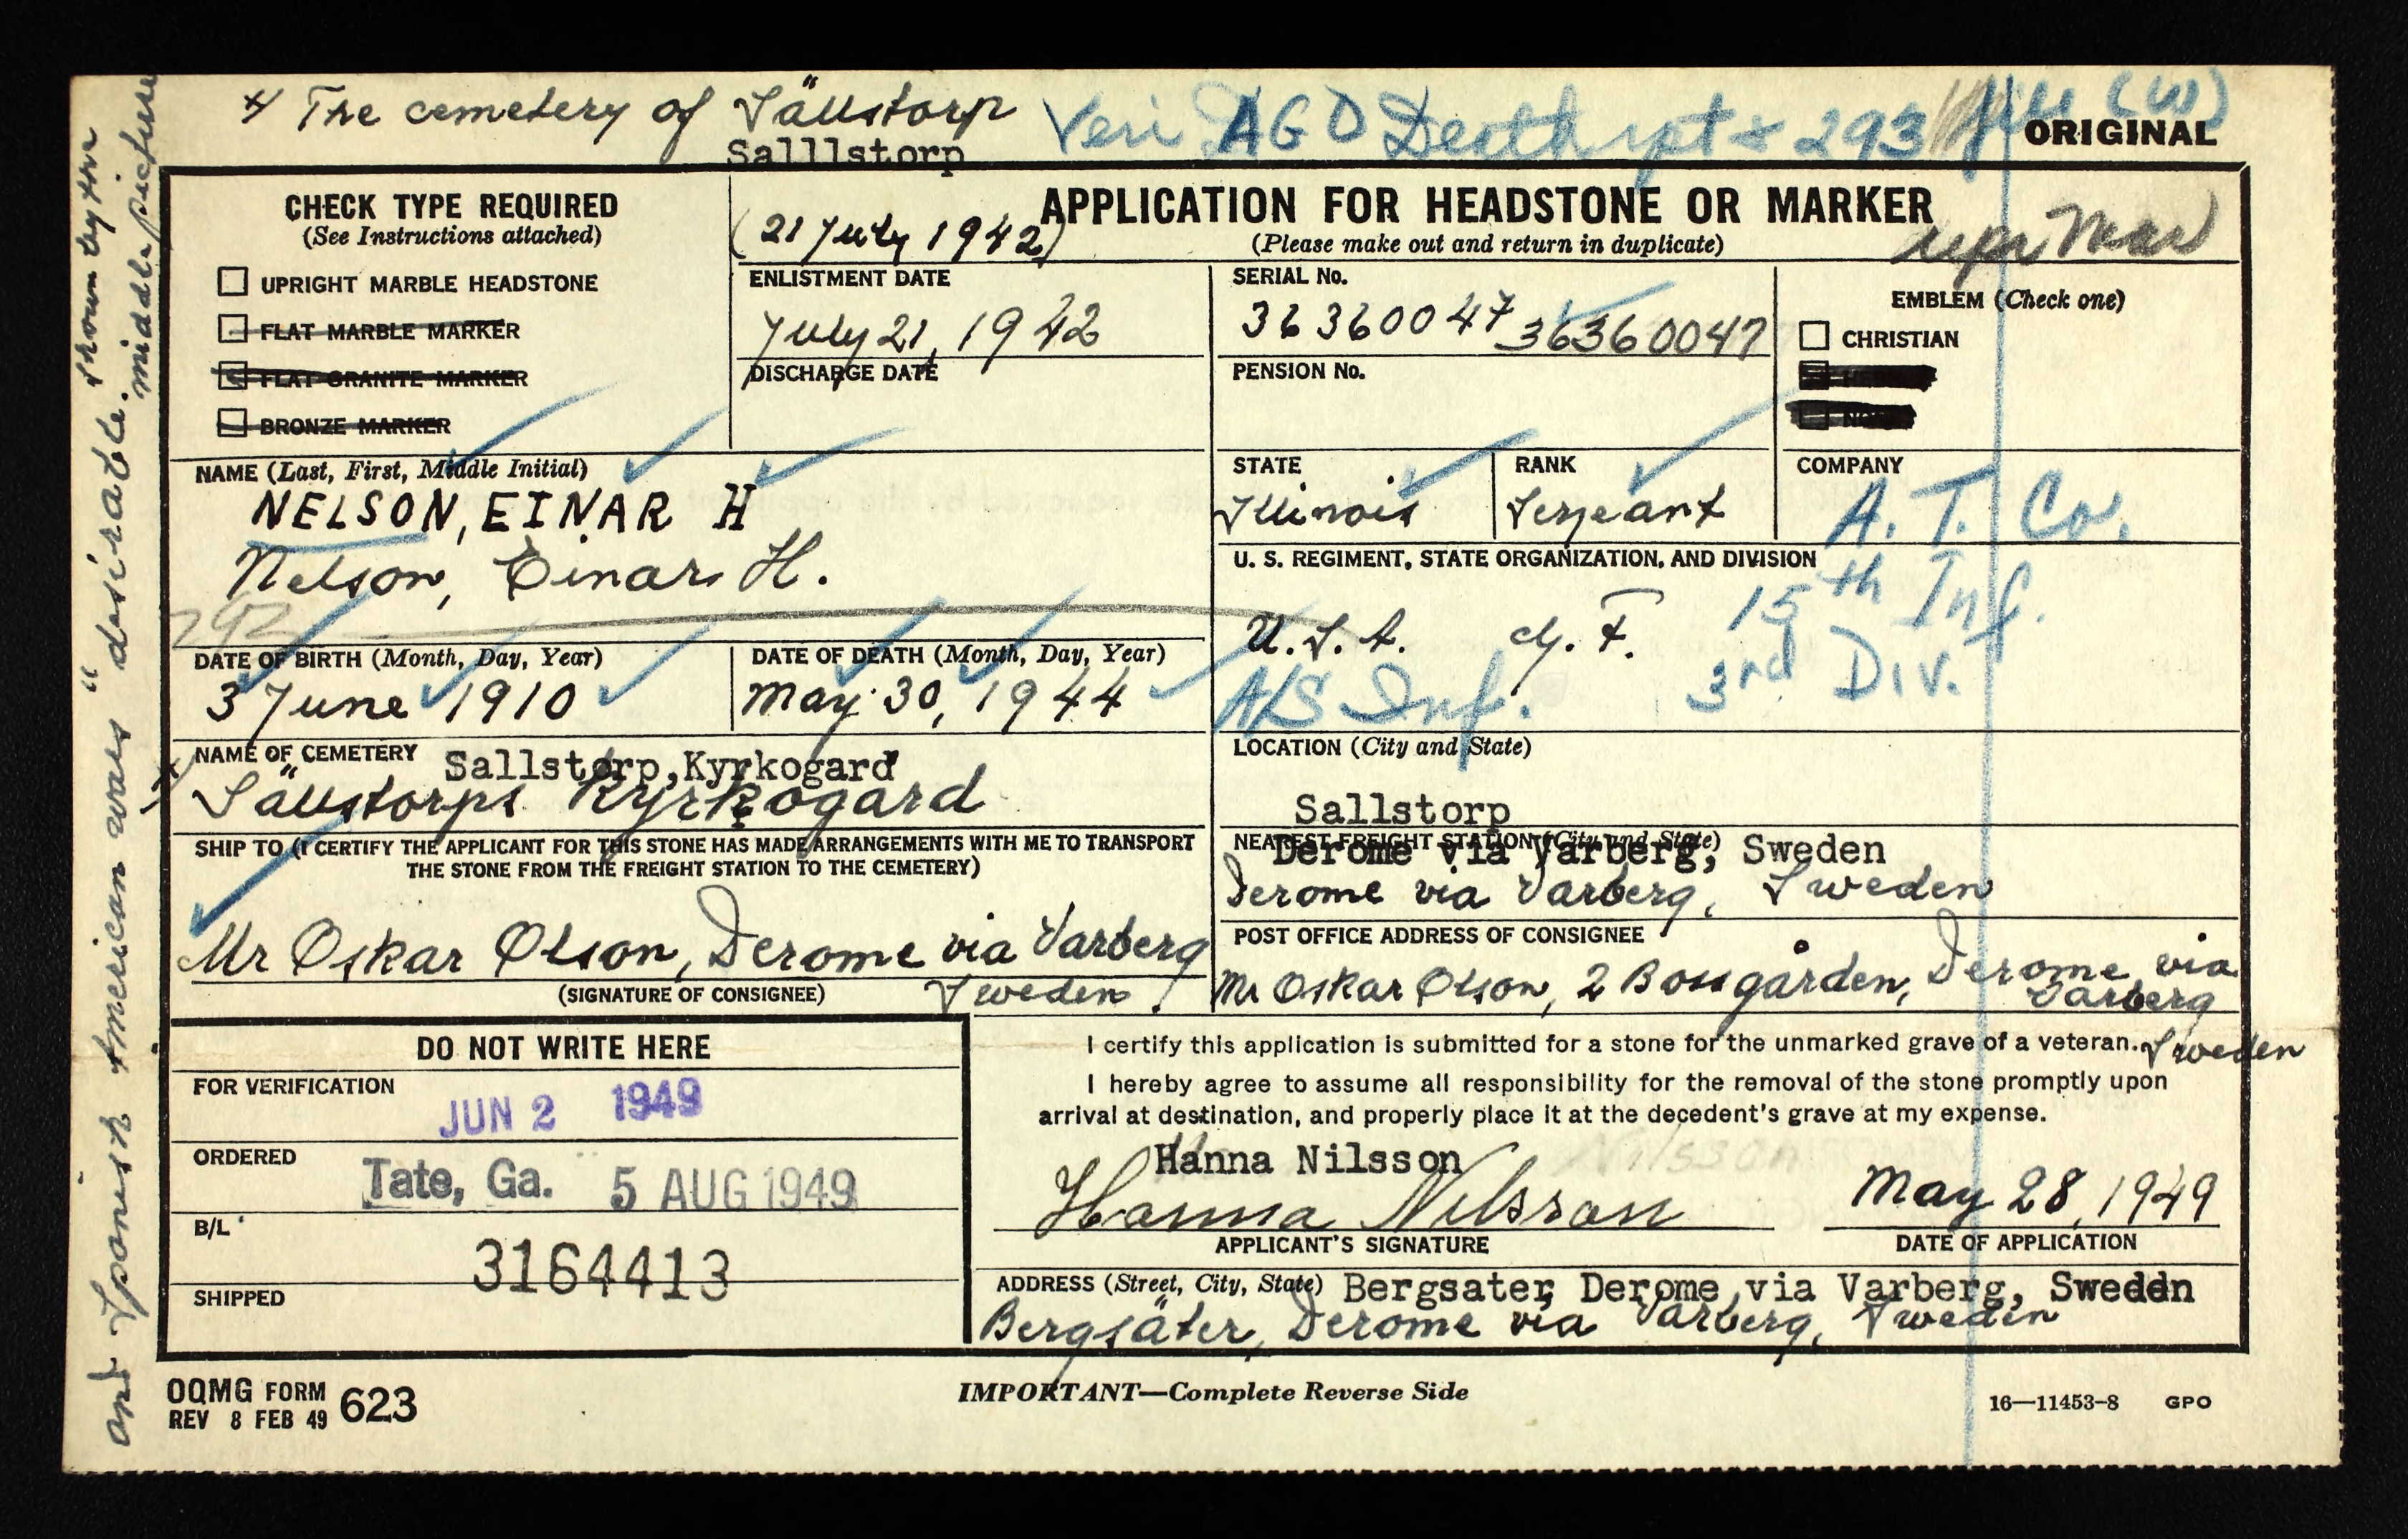 */ The cemetery of Sällstorp
Salllstorp
Veri AGD Death rpt & 293 file (W)
ORIGINAL
CHECK TYPE REQUIRED
(See Instructions attached)
UPRIGHT MARBLE HEADSTONE
FLAT MARBLE MARKER
FLAT GRANITE MARKER
BRONZE MARKER
APPLICATION FOR HEADSTONE OR MARKER
(Please make out and return in duplicate)
(21 July 1942)
ENLISTMENT DATE
July 21, 1942
DISCHARGE DATE
SERIAL No.
36360047 36360047
PENSION No.
EMBLEM (Check one)
CHRISTIAN
NAME (Last, First, Middle Initial)
NELSON, EINAR H
Nelson, Einar H.
293
STATE
Illinois
RANK
Sergeant
COMPANY
A. T. Co.
U. S. REGIMENT, STATE ORGANIZATION, AND DIVISION
15th Inf.
U.S.A.
3rd Div.
A/S Inf.
DATE OF BIRTH (Month, Day, Year)
3 June 1910
DATE OF DEATH (Month, Day, Year)
May 30, 1944
NAME OF CEMETERY
Sallstorp,Kyrkogard
*/ Sällstorps Kyrkogard
LOCATION (City and State)
Sallstorp
SHIP TO (I CERTIFY THE APPLICANT FOR THIS STONE HAS MADE ARRANGEMENTS WITH ME TO TRANSPORT
THE STONE FROM THE FREIGHT STATION TO THE CEMETERY)
Mr Oskar Olson, Derome via Varberg
Sweden
(SIGNATURE OF CONSIGNEE)
NEAREST FREIGHT STATION (City and State)
Derome via Varberg, Sweden
Derome via Varberg, Sweden
POST OFFICE ADDRESS OF CONSIGNEE
Mr Oskar Olson, 2 Bossgården, Derome via
Varberg
Sweden
DO NOT WRITE HERE
FOR VERIFICATION
JUN 2 1949
ORDERED
Tate, Ga. 5 AUG 1949
B/L
3164413
SHIPPED
I certify this application is submitted for a stone for the unmarked grave of a veteran.
I hereby agree to assume all responsibility for the removal of the stone promptly upon
arrival at destination, and properly place it at the decedent's grave at my expense.
Hanna Nilsson
Nilsson
Hanna Nilsson
APPLICANT'S SIGNATURE
May 28, 1949
DATE OF APPLICATION
ADDRESS (Street, City, State) Bergsater, Derome, via Varberg, Sweddn
Bergsäter, Derome via Varberg, Sweden
OQMG FORM 623
REV 8 FEB 49
IMPORTANT—Complete Reverse Side
16—11453-8 GPO
and Sponish American wars" desirable. shown by the
middle picture